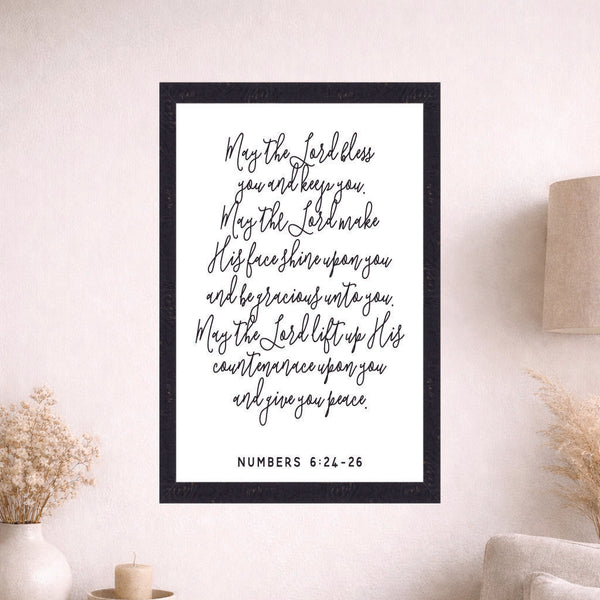 May the Lord bless
you and keep you.
May the Lord make
His face shine upon you
and be gracious unto you.
May the Lord lift up His
countenanace upon you
and give you peace.
NUMBERS 6:24-26